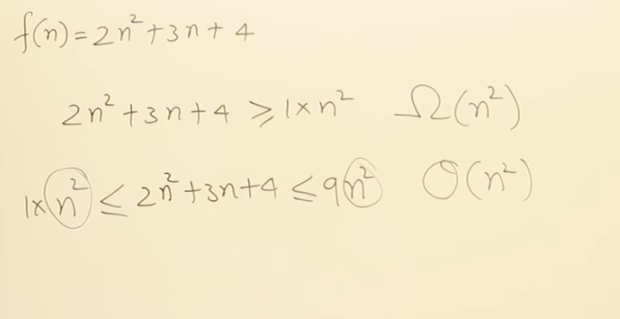 f(n) = 2n² + 3n + 4
2n² + 3n + 4 ≥ 1 × n² Ω(n²)
1 × n² ≤ 2n² + 3n + 4 ≤ 9n² O(n²)